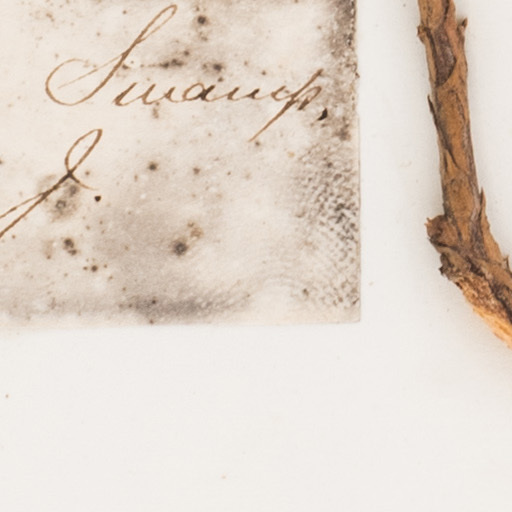 Swamp,
J.